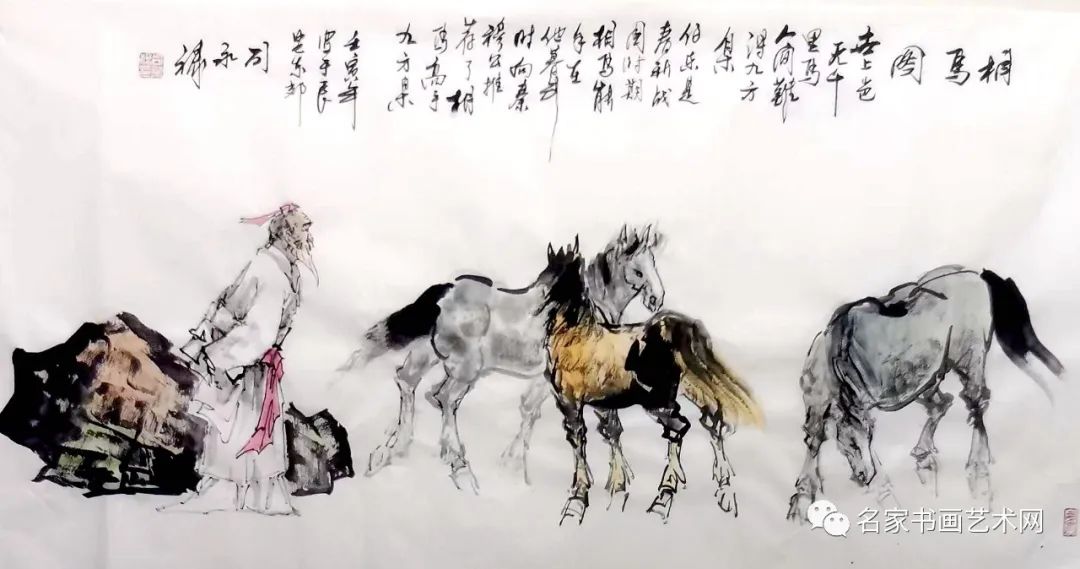 相马图
世上岂
无千
里马
人间难
得九方
皋
伯乐是
春秋战
国时期
相马能
手在
他暮年
时向秦
穆公推
荐了相
马高手
九方皋
壬寅年
写于长
安东郊
司永
名家书画艺术网